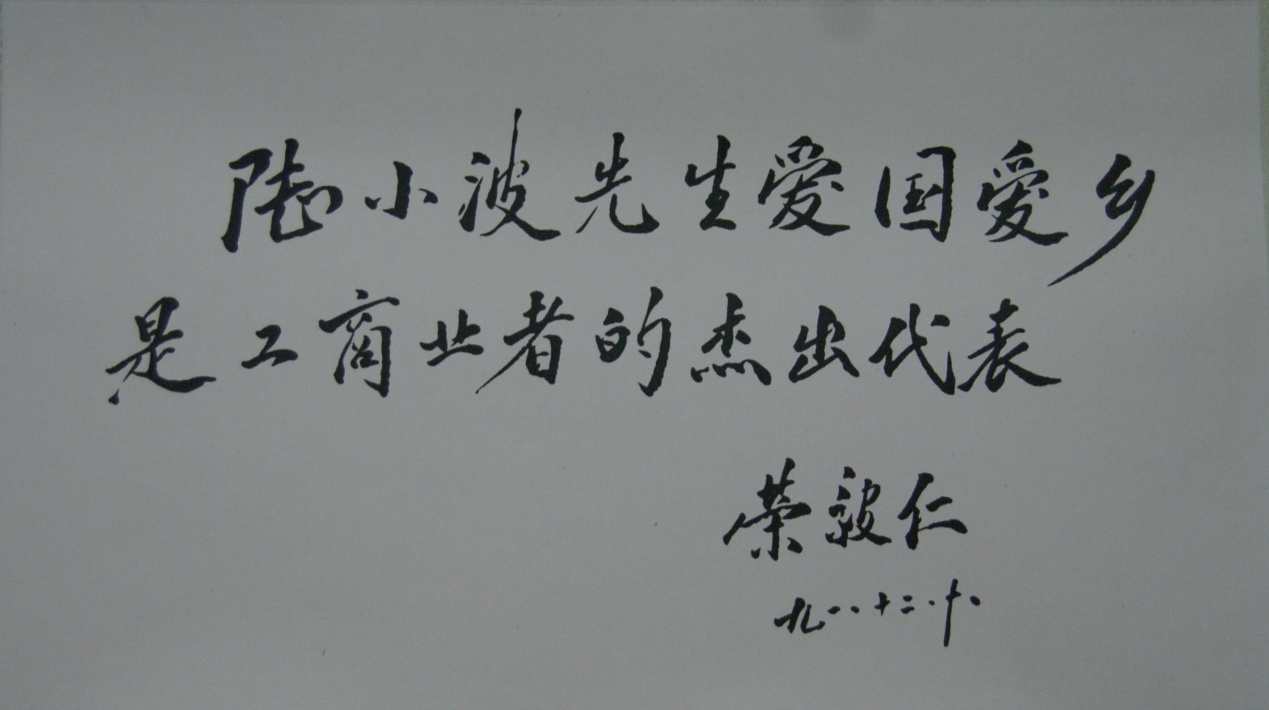 陆小波先生爱国爱乡
是工商业者的杰出代表
荣毅仁
九一·十二·十